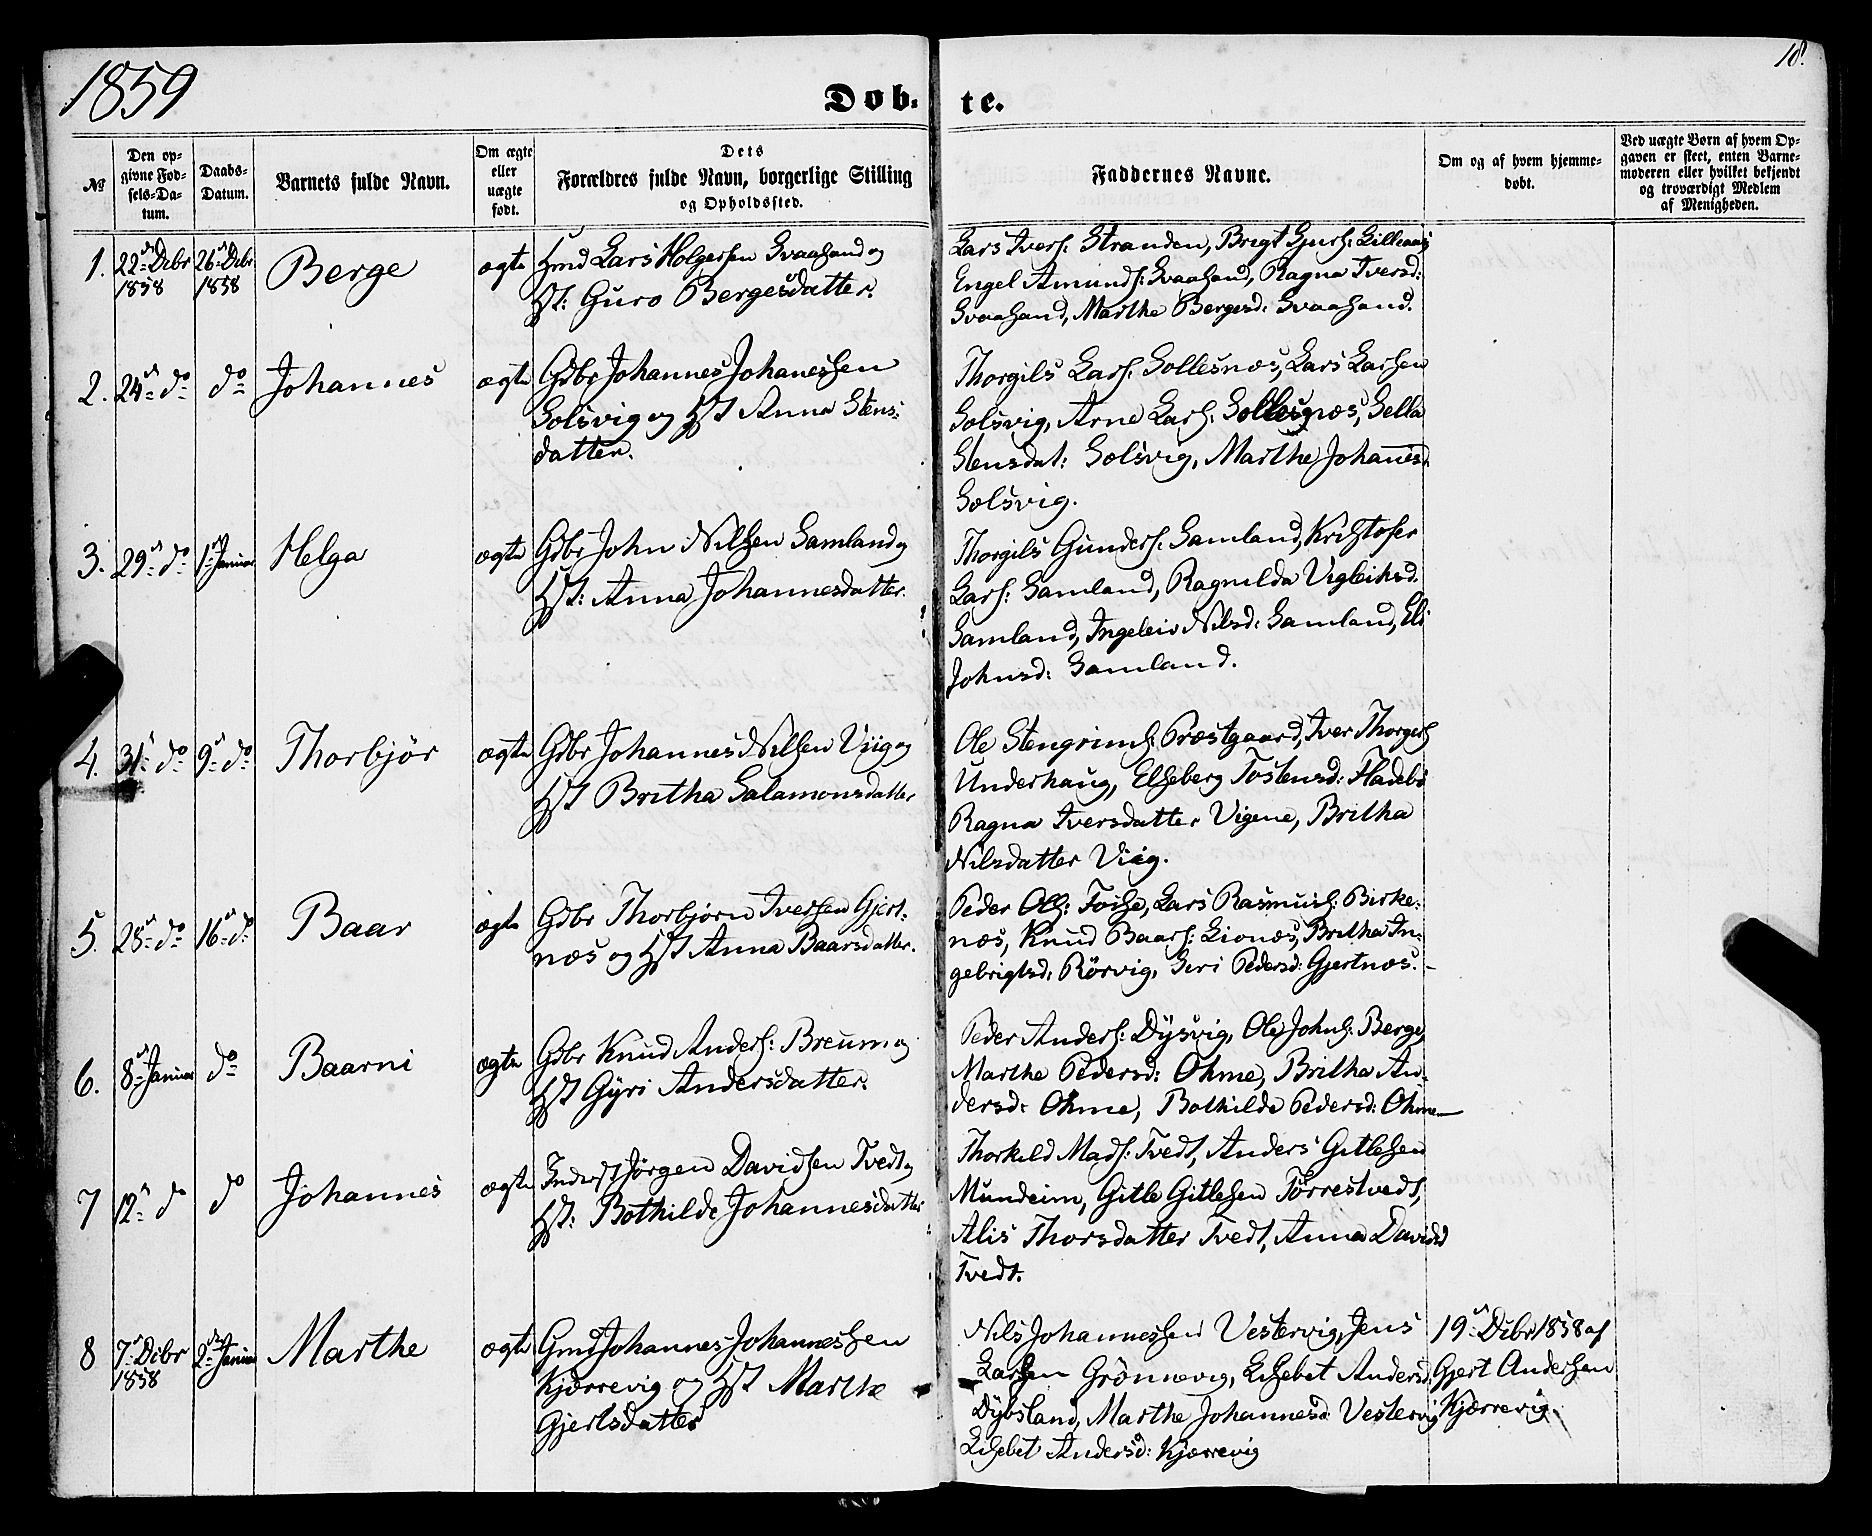 1859
18.
Døb-
te.
No
Den op-
givne Fød-
sels-Da-
tum.
Daabs-
Datum.
Barnets fulde Navn.
Om ægte
eller
uægte
født.
Dets
Forældres fulde Navn, borgerlige Stilling
og Opholdssted.
Faddernes Navne.
Om og af hvem hjemme-
døbt.
Ved uægte Børn af hvem Op-
gaven er skeet, enten Barne-
moderen eller hvilket bekjendt
og troværdigt Medlem
af Menigheden.
1. 22de Debr 1858
26de Debr 1858
Berge
ægte
Hmd Lars Holgersen Svaasand og
Hst: Guro Bergesdatter.
Lars Ivers: Stranden, Brigt Gjurs:
Engel Amunds: Svaasand, Ragna Iversd:
Svaasand, Marthe Bergesd: Svaasand.
2. 24de do
do
Johannes
ægte
Gdbr Johannes Johanessen
Solsvig og Hst Anna Stens-
datter.
Thorgils Lars: Sollesnæs, Lars Larsen
Solsvig, Arne Lars: Sollesnæs, Sella
Stensdat: Solsvig, Marthe Johanesd:
Solsvig.
3. 29de do
1ste Januar
Helga
ægte
Gdbr John Nilsen Samland og
Hst: Anna Johannesdatter.
Thorgils Gunders: Samland, Kristofer
Lars: Samland, Ragnilda Vigleiksd.
Samland, Ingeleiv Nilsd: Samland, Eli
Johnsd: Samland.
4. 31te do
9de do
Thorbjør
ægte
Gdbr Johannes Nilsen Viig og
Hst Britha Salamonsdatter
Ole Stengrims: Præstgaard, Iver Thorgers
Underhaug, Elseberg Tostensd: Fladebø
Ragna Iversdatter Vigene, Britha
Nilsdatter Viig.
5. 28de do
16de do
Baar
ægte
Gdbr Thorbjørn Iversen Gjert-
næs og Hst Anna Baarsdatter.
Peder Ols: Lars Rasmus: Birke-
næs, Knud Baars: Lionæs, Britha In-
gebrigtsd: Rørvig, Seri Pedersd: Gjertnæs.
6. 8de Januar
do
Baarni
ægte
Gdbr Knud Anders: Breum og
Hst Gyri Andersdatter.
Peder Anders: Dysvig, Ole Johns: Berge,
Marthe Pedersd: Ohme, Britha An-
dersd: Ohme, Bothilde Pedersd: Ohme
7 12te do
do
Johannes
ægte
Inderst Jørgen Davidsen Tvedt og
Hst: Bothilde Johannesdatter
Thorkild Mads: Tvedt, Anders Gitlesen
Mundeim, Gitle Gitlesen Tørrestvedt,
Alis Thorsdatter Tvedt, Anna Davidsd
Tvedt.
8 7de Debr 1858
2den Januar
Marthe
ægte
Gmd Johannes Johannessen
Kjærrevig og Hst Marthe
Gjertsdatter
Nils Johannessen Vestervig, Jens
Larsen Grønnevig, Lisebet Andersd:
Dybsland, Marthe Johannesd: Vestervig
Lisebet Andersd: Kjærrevig
19de Debr 1858 af
Gjert Andersen
Kjærrevig